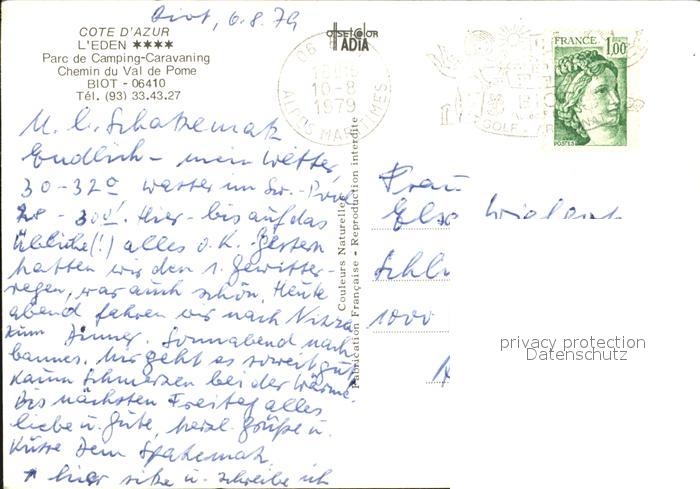 Biot, 6.8.79
COTE D'AZUR
L'EDEN ★★★★
Parc de Camping-Caravaning
Chemin du Val de Pome
BIOT - 06410
Tél. (93) 33.43.27
OFFSET COLOR
ADIA
06
10-8
1979
ALPES MARITIMES
GOLFE
FRANCE
1,00
POSTES
M. l. Schatzematz
Endlich - mein Wetter,
30-32° Wasser im Sw.-Pool
28 - 30°! Hier - bis auf das
Übliche(!) alles o.K. Gestern
hatten wir den 1. Gewitter-
regen, war auch schön. Heute
abend fahren wir nach Nizza
zum Dinner. Sonnabend nach
Cannes. Mir geht es soweit gut,
kaum Schmerzen bei der Wärme.
Bis nächsten Freitag alles
liebe u. Gute, herzl. Grüße u.
Küsse Dein Spatzematz
↑ hier sitze u. schreibe ich
Couleurs Naturelles
Fabrication Française - Reproduction interdite
Frau
Schl
1000
privacy protection
Datenschutz